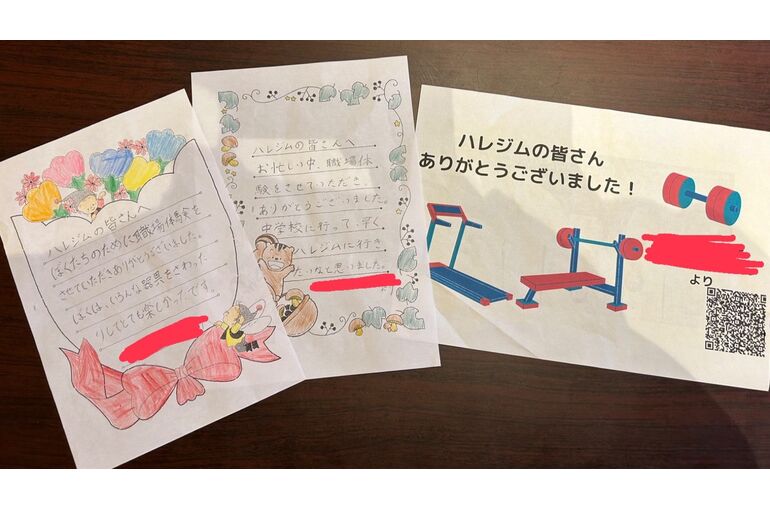 ハレジムの皆さんへ
ぼくたちのために職場体験を
させていただきありがとうございました。
ぼくは、いろんな器具をさわった
りしてとても楽しかったです。
ハレジムの皆さんへ
お忙しい中、職場体
験をさせていただき、
ありがとうございました。
中学校に行って、早く
ハレジムに行き
たいなと思いました。
ハレジムの皆さん
ありがとうございました！
より